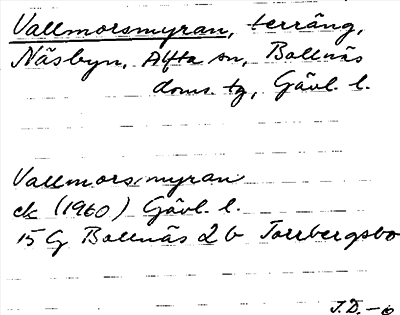 Vallmorsmyran, terräng,
Näsbyn, Alfta sn, Bollnäs
doms. tg, Gävl. l.
Vallmorsmyran
ek (1960) Gävl. l.
15 G Bollnäs 2 b Torrbergsbo
J.D. -6